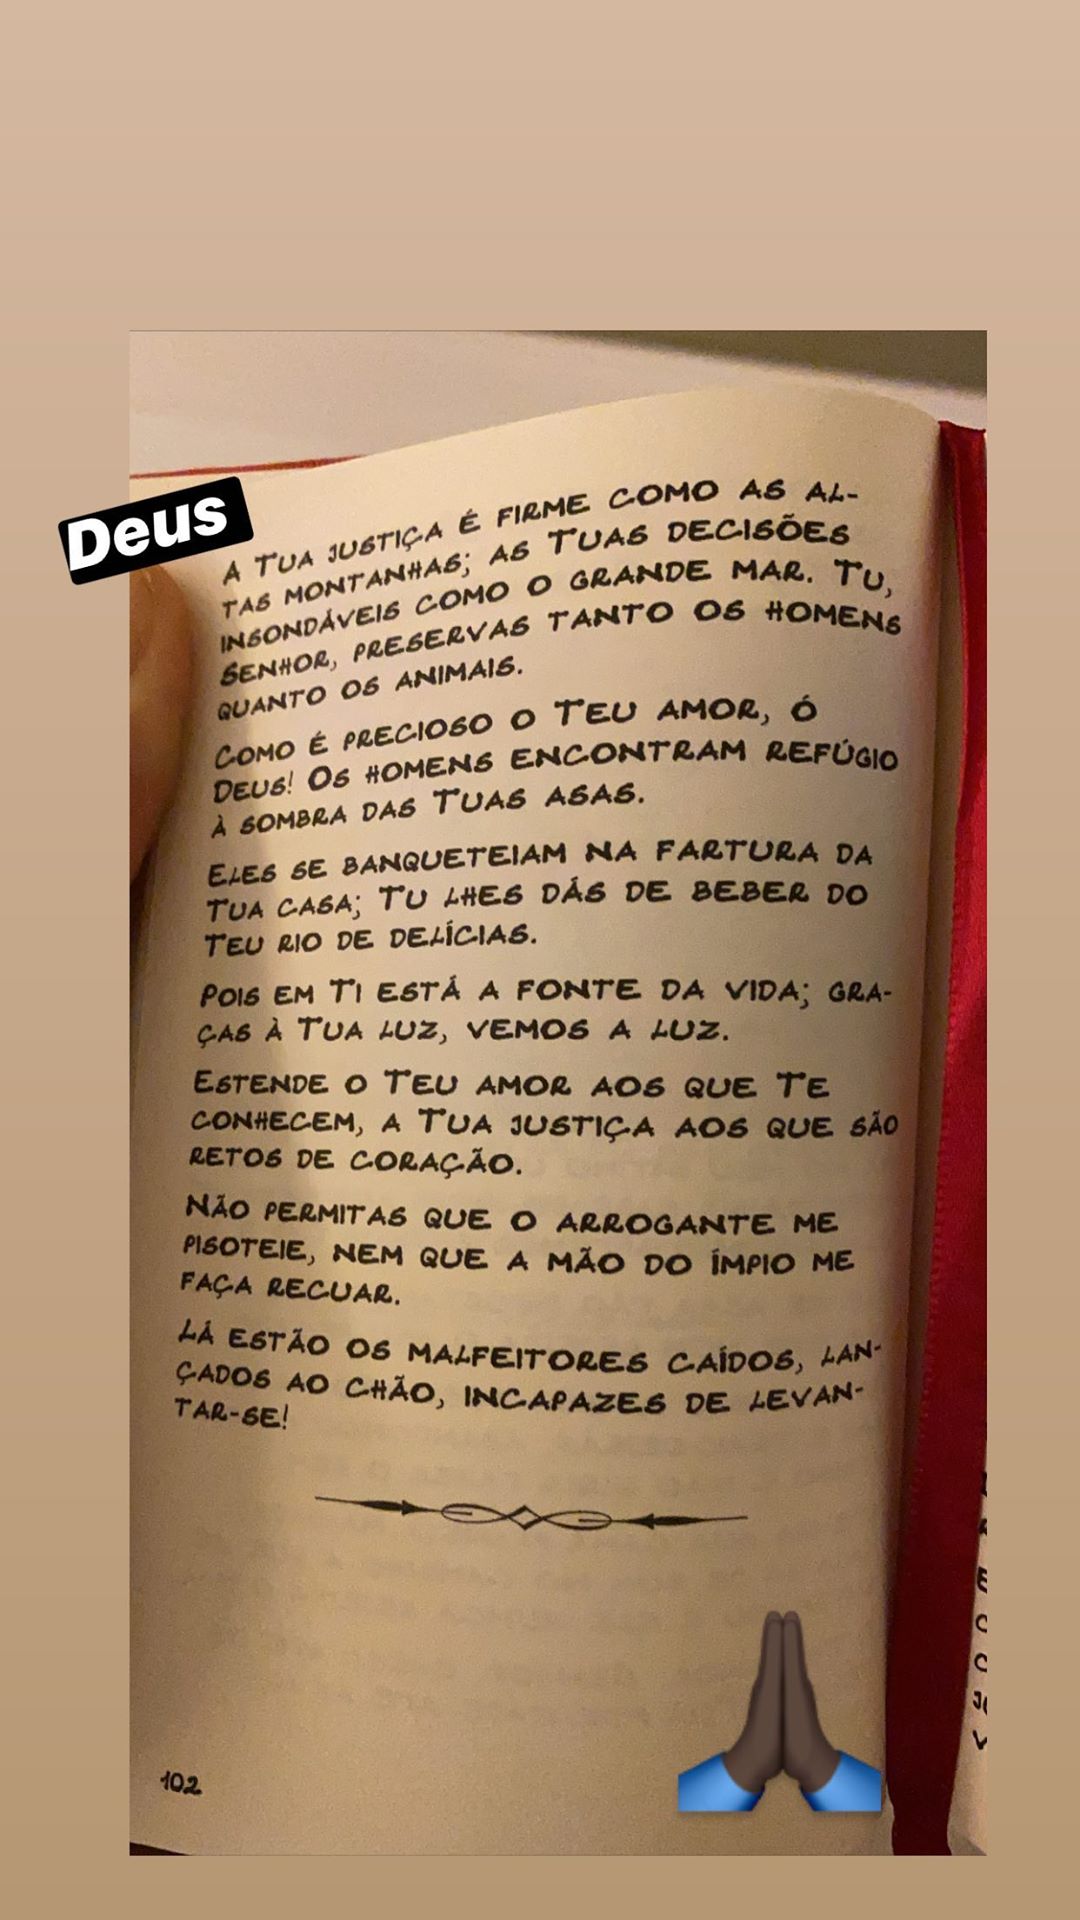 Deus
A TUA JUSTIÇA É FIRME COMO AS AL-
TAS MONTANHAS; AS TUAS DECISÕES
INSONDÁVEIS COMO O GRANDE MAR. TU,
SENHOR, PRESERVAS TANTO OS HOMENS
QUANTO OS ANIMAIS.
COMO É PRECIOSO O TEU AMOR, Ó
DEUS! OS HOMENS ENCONTRAM REFÚGIO
À SOMBRA DAS TUAS ASAS.
ELES SE BANQUETEIAM NA FARTURA DA
TUA CASA; TU LHES DÁS DE BEBER DO
TEU RIO DE DELÍCIAS.
POIS EM TI ESTÁ A FONTE DA VIDA; GRA-
ÇAS À TUA LUZ, VEMOS A LUZ.
ESTENDE O TEU AMOR AOS QUE TE
CONHECEM, A TUA JUSTIÇA AOS QUE SÃO
RETOS DE CORAÇÃO.
NÃO PERMITAS QUE O ARROGANTE ME
PISOTEIE, NEM QUE A MÃO DO ÍMPIO ME
FAÇA RECUAR.
LÁ ESTÃO OS MALFEITORES CAÍDOS, LAN-
ÇADOS AO CHÃO, INCAPAZES DE LEVAN-
TAR-SE!
102